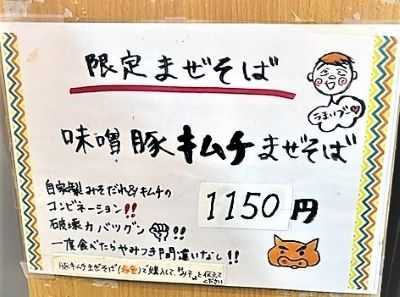 限定まぜそば
うまいブー
味噌豚キムチまぜそば
自家製みそだれ&キムチの
コンビネーション!!
1150円
破壊力バツグン!!
一度食べたらやみつき間違いなし!!
豚キムチまぜそば()で購入して、「みそ」と伝えてください